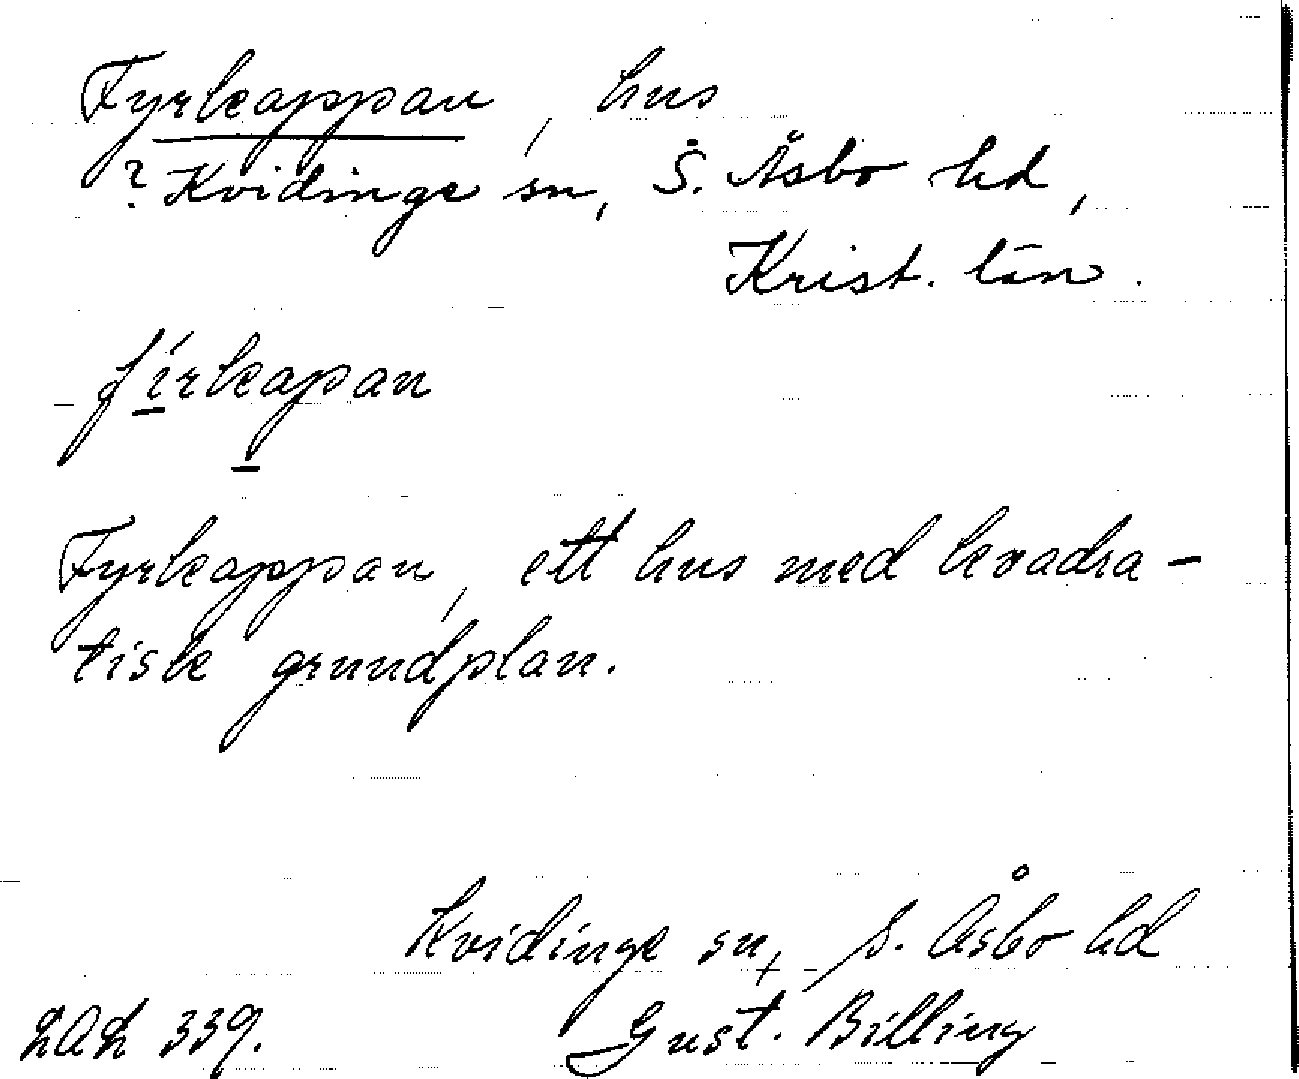 Fyrkappan, hus
? Kvidinge sn, S. Åsbo hd,
Krist. län.
fírkapan
Fyrkappan, ett hus med kvadra-
tisk grundplan.
Kvidinge sn, S. Åsbo hd
LAL 339. Gust. Billing